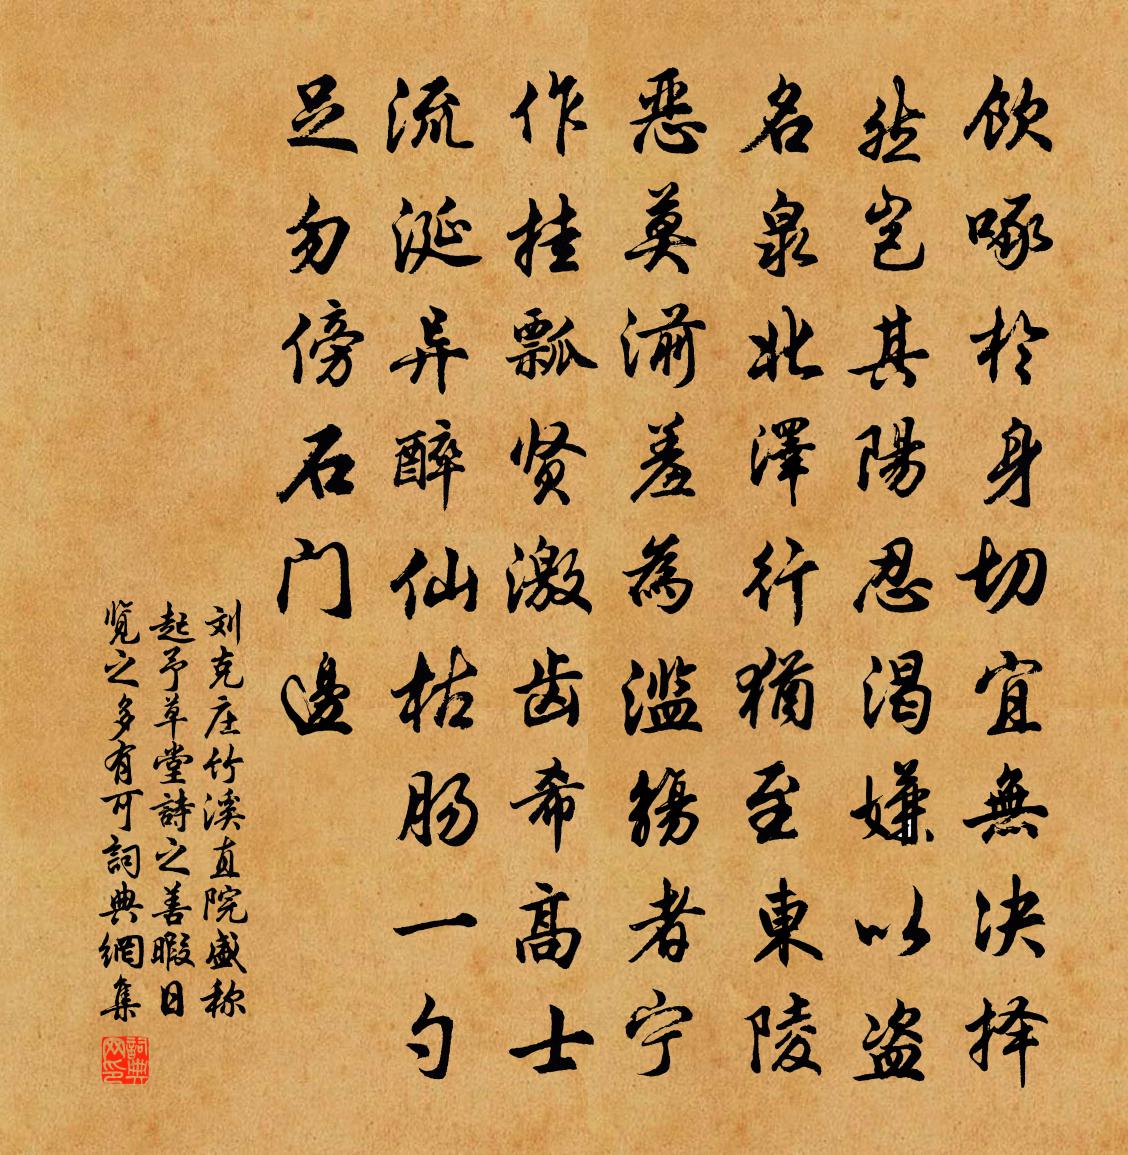 飲啄於身切宜無決择
然岂其陽忍渴嫌以盗
名泉北澤行猶至東陵
恶莫湔羞為滥觴者宁
作挂瓢贤激齿希高士
流涎异醉仙枯肠一勺
足勿傍石门邊
刘克庄竹溪直院盛称
起予草堂詩之善暇日
览之多有可詞典網集
詞典
网印